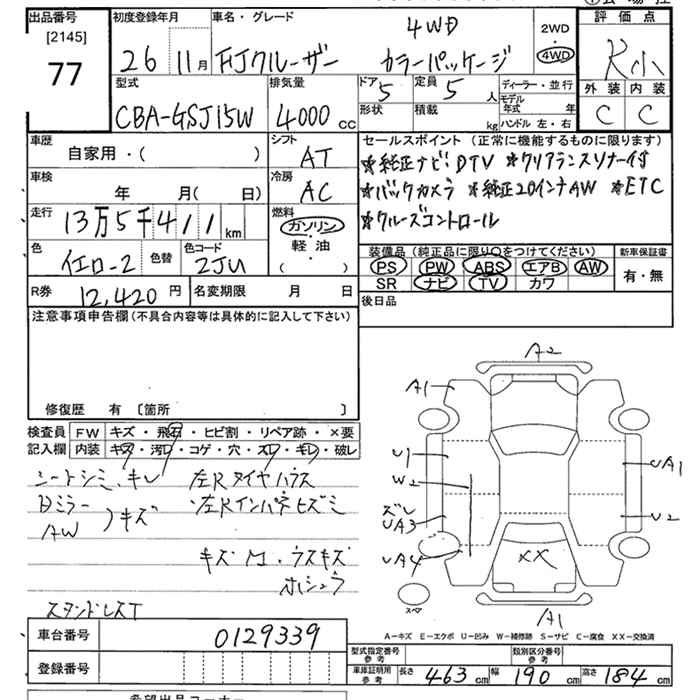 出品番号 初度登録年月 車名・グレード 4WD 2WD・4WD 評価点
[2145] 77 26 11月 FJクルーザー カラーパッケージ R小
型式 排気量 ドア 5 定員 5人 ディーラー・並行 外装 内装
CBA-GSJ15W 4000cc 形状 積載 kg モデル年式 年 C C
ハンドル 左・右
車歴 シフト セールスポイント(正常に機能するものに限ります)
自家用・( ) AT ★純正ナビ DTV ★クリアランスソナー付
車検 冷房 ★バックカメラ ★純正20インチAW ★ETC
年 月( 日) AC ★クルーズコントロール
走行 燃料
13万5千411km ガソリン・軽油・( )
装備品(純正品に限り○をつけてください) 新車保証書
色 イエロー2 色替 色コード 2JU PS PW ABS エアB AW 有・無
SR ナビ TV カワ
R券 12,420円 名変期限 月 日 後日品
注意事項申告欄(不具合内容等は具体的に記入して下さい)
修復歴 有 [箇所 ]
検査員 FW キズ・飛石・ヒビ割・リペア跡・×要
記入欄 内装 キズ・汚レ・コゲ・穴・スレ・キレ・破レ
シートシミ・キレ 左Rタイヤハウス
Dミラー 左Rインパネヒズミ
AW )キズ
キズ M・ウスキズ
ホシュウ
スタンドレスT
A2
A1
U1
W2
ズレ
UA3
UA4
UA1
U2
XX
スペア
A1
A-キズ E-エクボ U-凹み W-補修跡 S-サビ C-腐食 XX-交換済
車台番号 0129339
登録番号
型式指定番号 参考 類別区分番号 参考
車庫証明用 参考 長さ 463cm 幅 190cm 高さ 184cm
希望出品コーナー